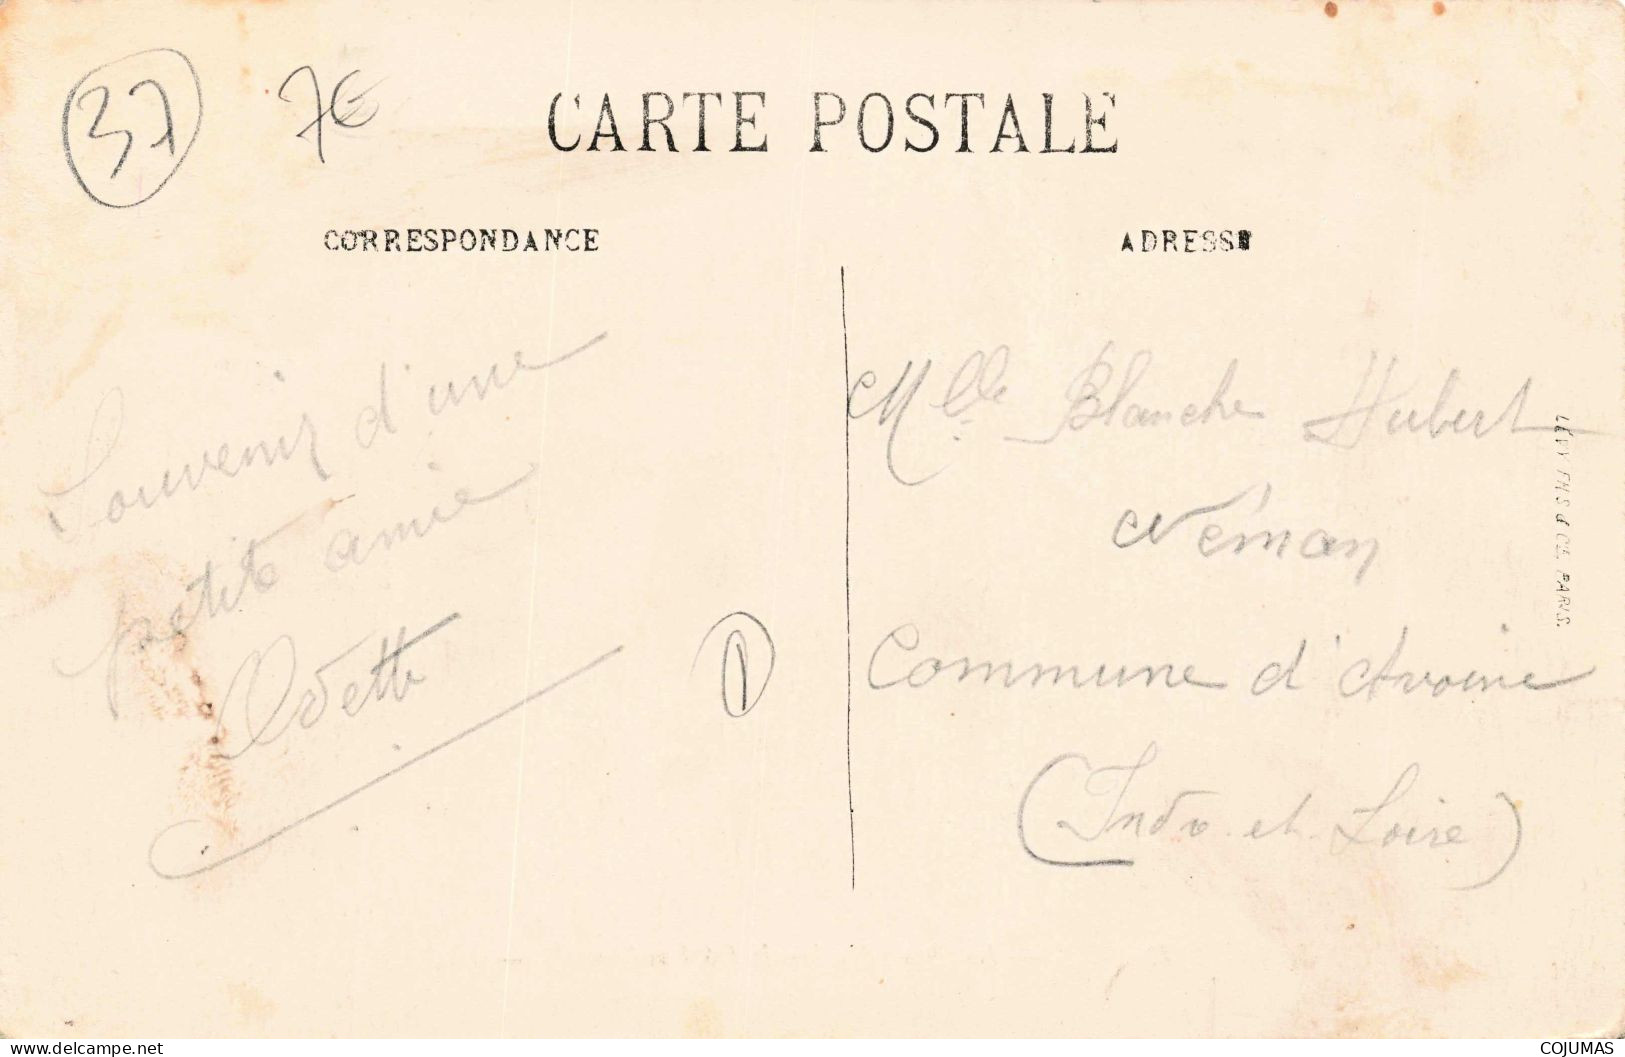 37
7€
CARTE POSTALE
CORRESPONDANCE
ADRESSE
Souvenir d'une
petite amie
Odette
Mlle Blanche Hubert
Néman
Commune d'Avoine
(Indre et Loire)
LÉVY FILS & CIE. PARIS.
www.delcampe.net
COJUMAS